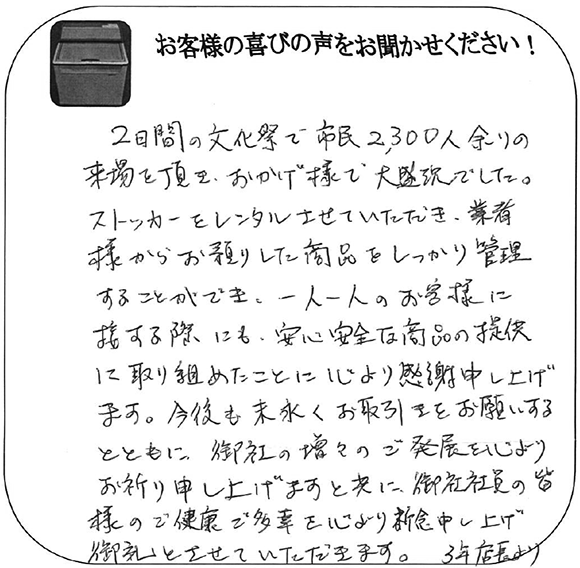 お客様の喜びの声をお聞かせください！
2日間の文化祭で市民2,300人余りの
来場を頂き、おかげ様で大盛況でした。
ストッカーをレンタルさせていただき、業者
様からお預りした商品をしっかり管理
することができ、一人一人のお客様に
接する際にも、安心安全な商品の提供
に取り組めたことに心より感謝申し上げ
ます。今後も末永くお取引きをお願いする
とともに、御社の増々のご発展を心より
お祈り申し上げますと共に、御社社員の皆
様のご健康ご多幸を心より祈念申し上げ
御礼とさせていただきます。 3年店長より